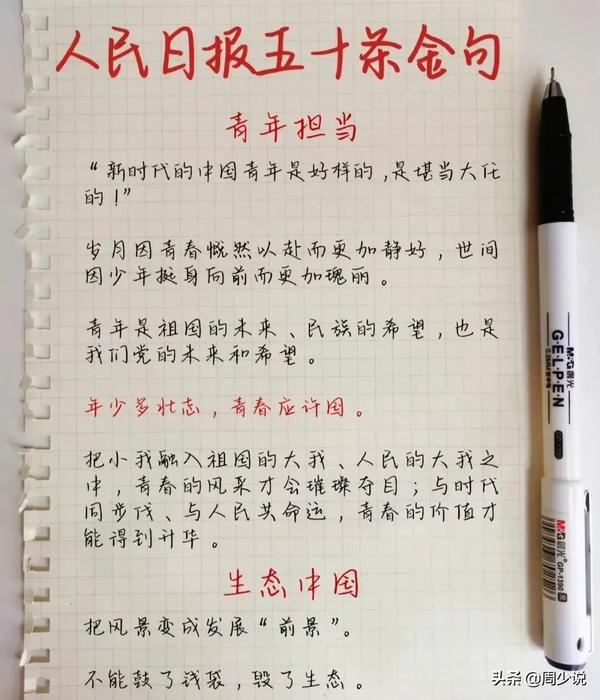 人民日报五十条金句
青年担当
“新时代的中国青年是好样的,是堪当大任
的!”
岁月因青春慨然以赴而更加静好,世间
因少年挺身向前而更加瑰丽。
青年是祖国的未来、民族的希望,也是
我们党的未来和希望。
年少多壮志,青春应许国。
把小我融入祖国的大我、人民的大我之
中,青春的风采才会璀璨夺目;与时代
同步伐、与人民共命运,青春的价值才
能得到升华。
生态中国
把风景变成发展“前景”。
不能鼓了钱袋,毁了生态。
M&G 晨光
GELPEN
M&G 晨光
GP-1390
头条 @周少说